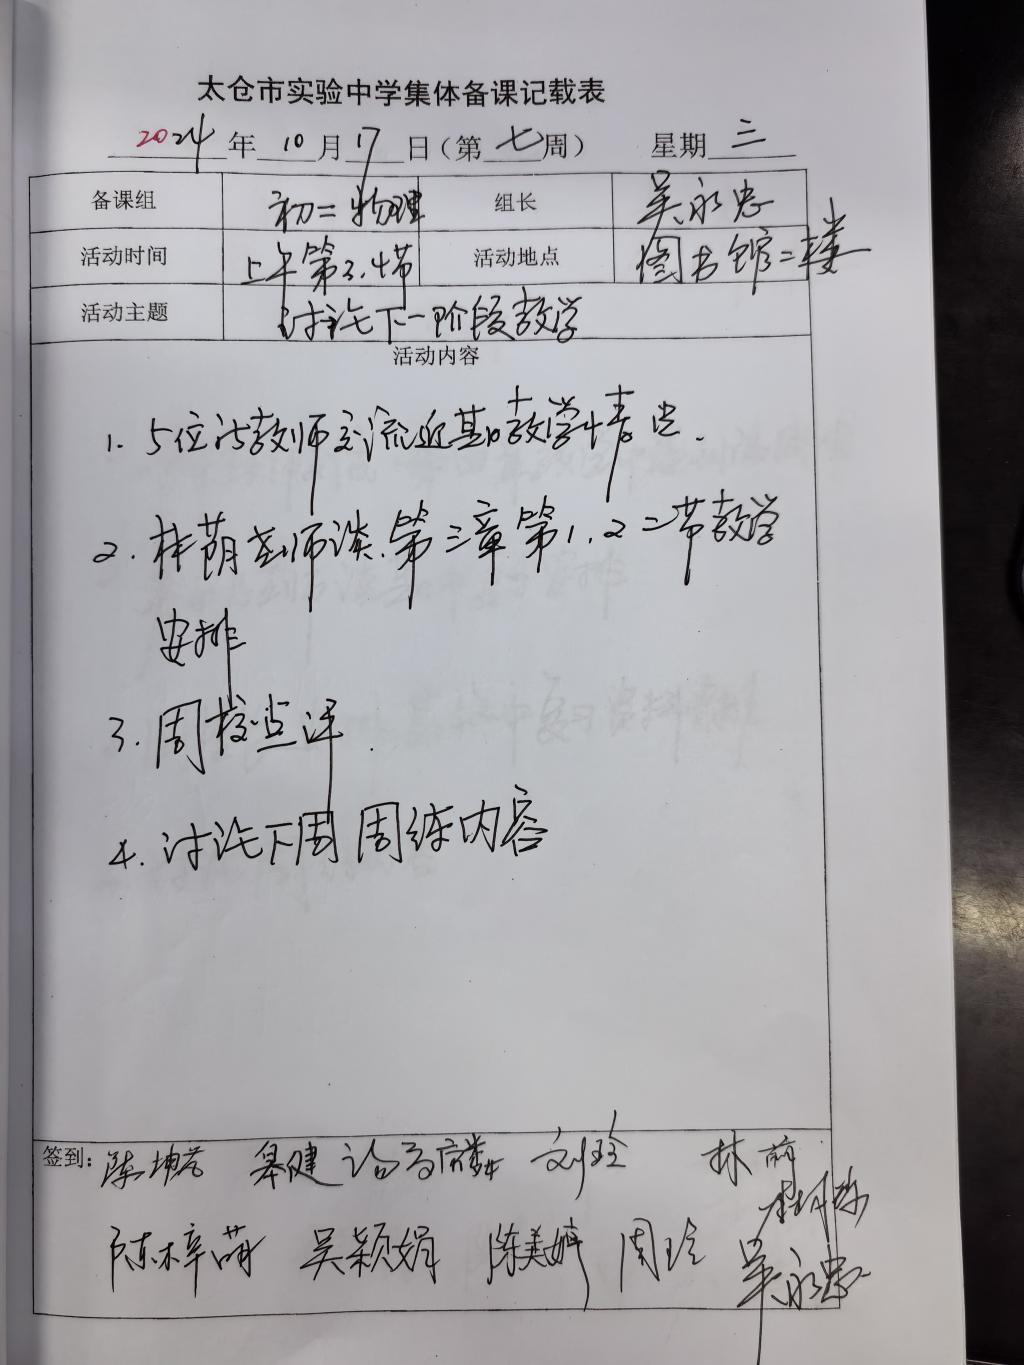 太仓市实验中学集体备课记载表
2024年10月17日（第七周） 星期三
备课组 初二物理 组长 吴永忠
活动时间 上午第3.4节 活动地点 图书馆二楼
活动主题 讨论下一阶段教学
活动内容
1. 5位 教师交流近期教学情况.
2. 林萌老师谈.第三章第1.2二节教学
安排
3. 周校点评.
4. 讨论下周周练内容
签到： 健 刘玲 林萌
陈梓萌 吴颖娟 陈美婷 周玲 吴永忠